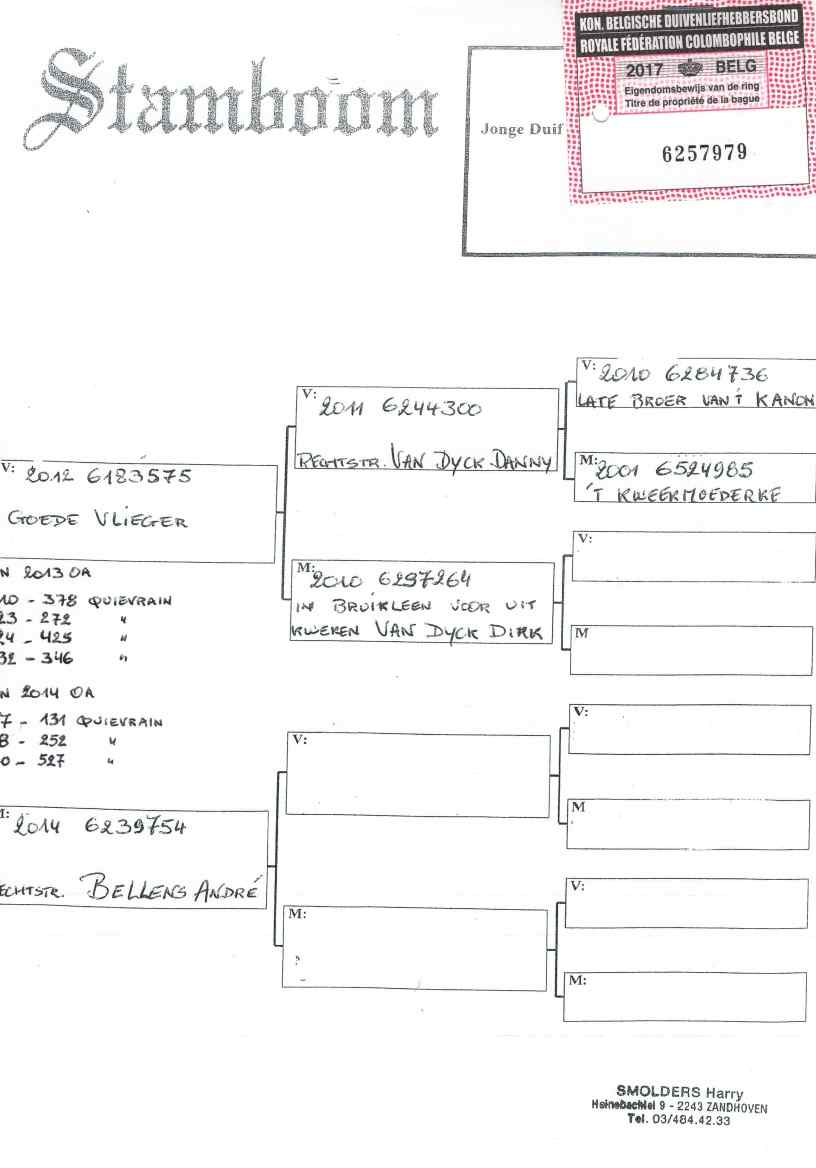 Stamboom
KON. BELGISCHE DUIVENLIEFHEBBERSBOND
ROYALE FÉDÉRATION COLOMBOPHILE BELGE
2017 BELG
Eigendomsbewijs van de ring
Titre de propriété de la bague
6257979
Jonge Duif
V: 2010 6284736
LATE BROER VAN 'T KANON
V: 2011 6244300
RECHTSTR. VAN DYCK DANNY
M: 2001 6524985
'T KWEEKMOEDERKE
V: 2012 6183575
GOEDE VLIEGER
V:
M: 2010 6297264
IN BRUIKLEEN VOOR UIT
KWEKEN VAN DYCK DIRK
M
N 2013 OA
10 - 378 QUIEVRAIN
23 - 272 "
24 - 425 "
32 - 346 "
N 2014 OA
7 - 131 QUIEVRAIN
8 - 252 "
0 - 527 "
V:
V:
M
M: 2014 6239754
ECHTSTR. BELLENS ANDRÉ
V:
M:
M:
SMOLDERS Harry
Heinebachlei 9 - 2243 ZANDHOVEN
Tel. 03/484.42.33